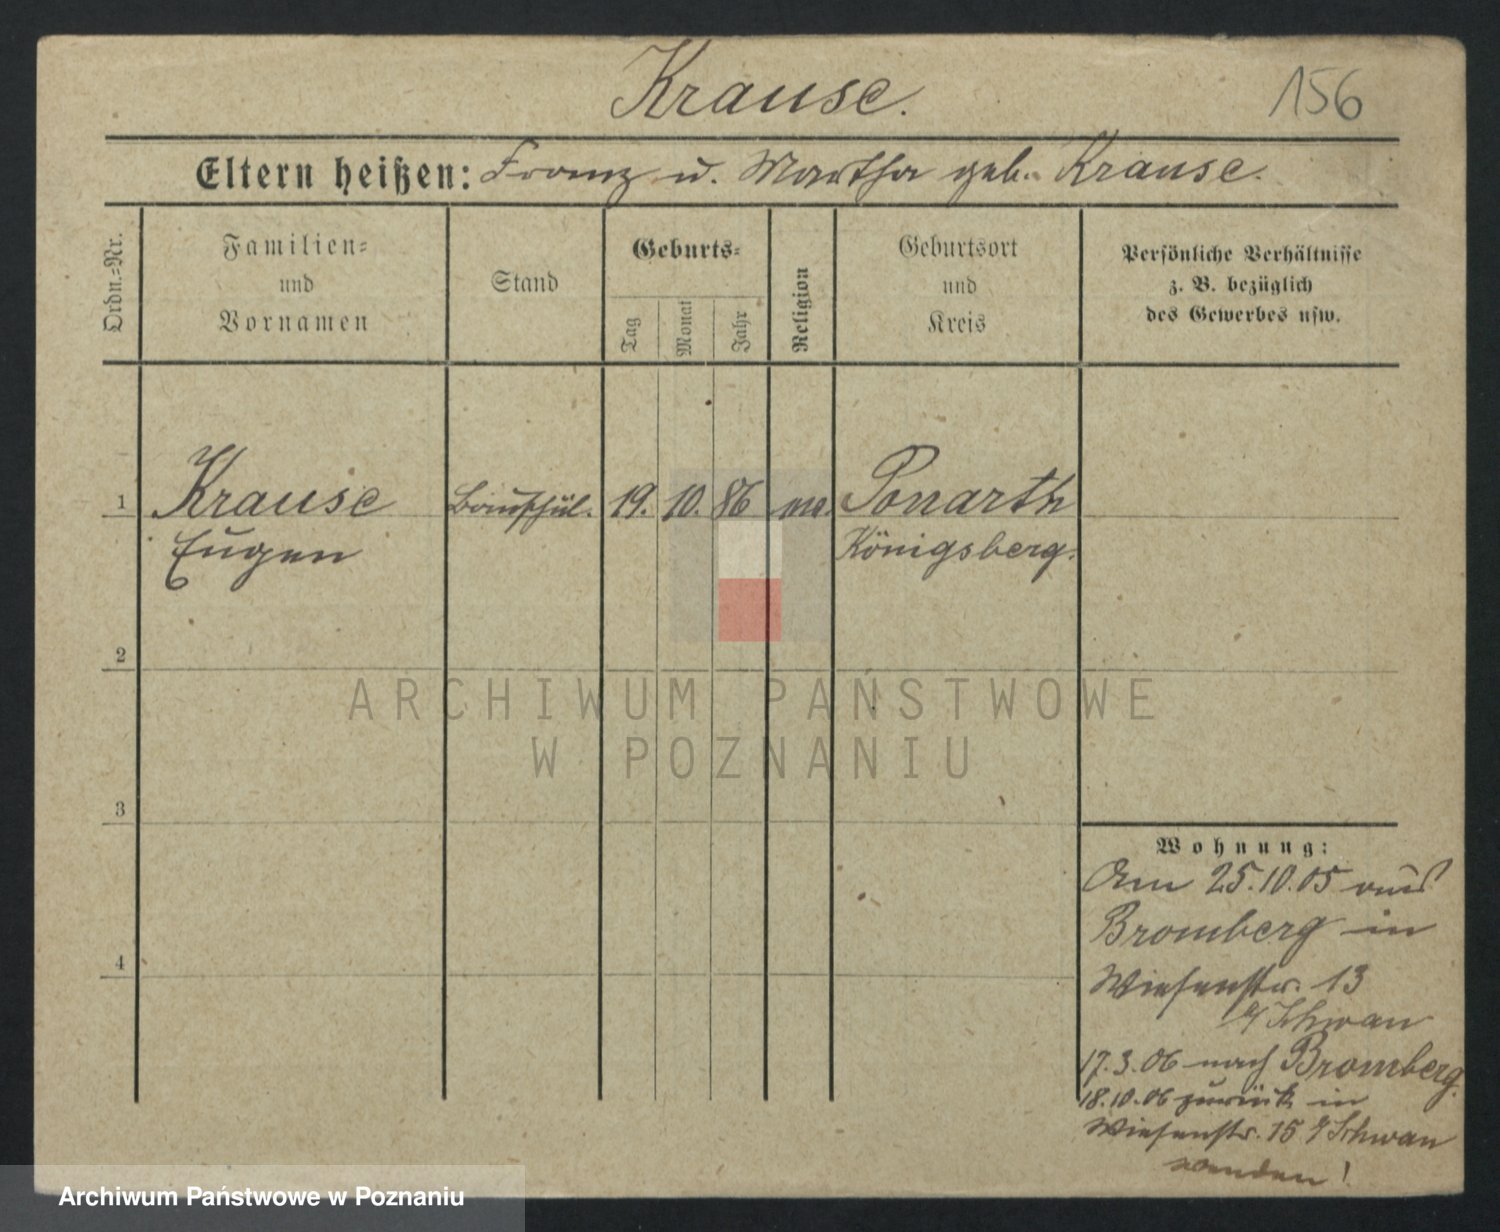 Krause.
156
Eltern heißen: Franz u. Martha geb. Krause.
Ordn.=Nr.
Familien=
und
Vornamen
Stand
Geburts=
Tag
Monat
Jahr
Religion
Geburtsort
und
Kreis
Persönliche Verhältnisse
z. B. bezüglich
des Gewerbes usw.
1
Krause
Eugen
Bauschül.
19.
10.
86
Ponarth
Königsberg.
2
3
4
Wohnung:
Am 25.10.05 aus
Bromberg in
Wiesenstr. 13
b/ Schwan
17.3.06 nach Bromberg.
18.10.06 zurück in
Wiesenstr. 15 b/ Schwan
wenden!
ARCHIWUM PAŃSTWOWE
W POZNANIU
Archiwum Państwowe w Poznaniu